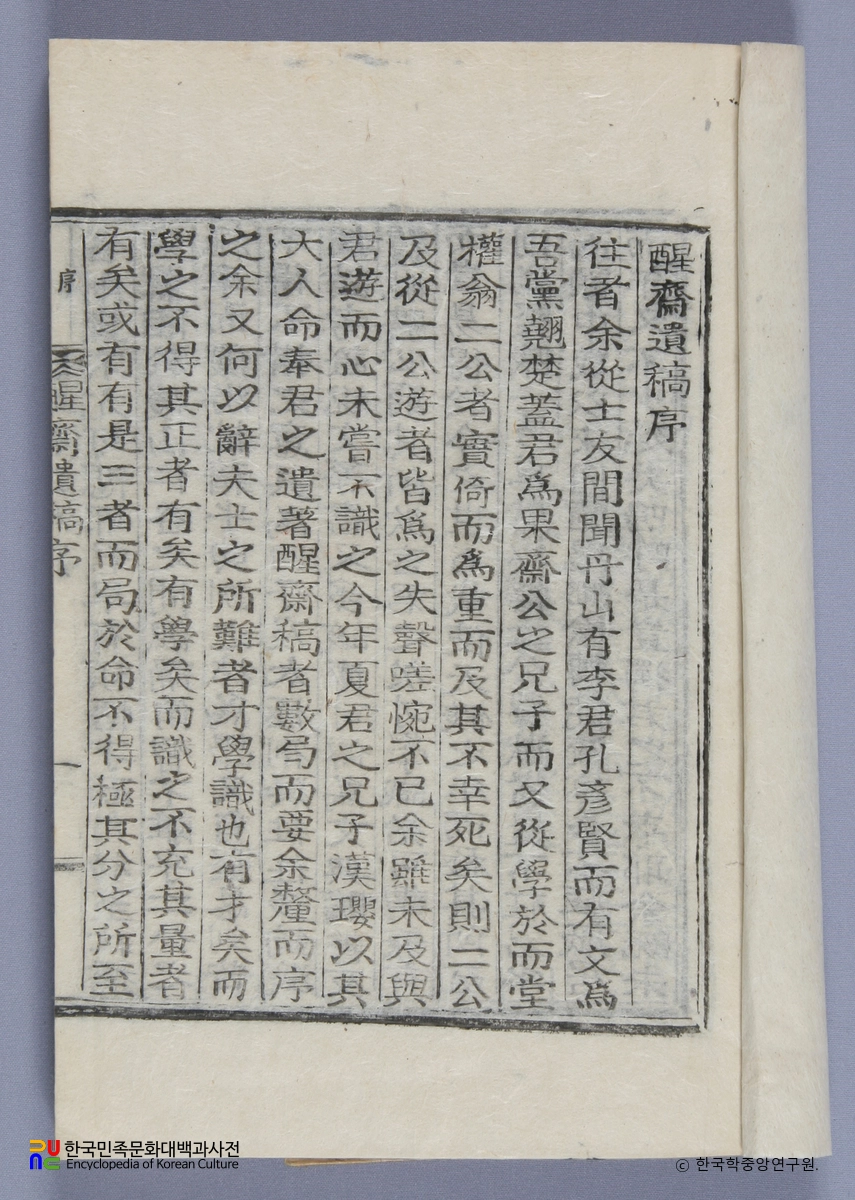 醒齋遺稿序
往者余從士友間聞丹山有李君孔彦賢而有文爲
吾黨翹楚蓋君爲果齋公之兄子而又從學於而堂
權翁二公者實倚而爲重而及其不幸死矣則二公
及從二公遊者皆爲之失聲嗟惋不已余雖未及與
君遊而心未嘗不識之今年夏君之兄子漢璎以其
大人命奉君之遺著醒齋稿者數局而要余釐而序
之余又何以辭夫士之所難者才學識也有才矣而
學之不得其正者有矣有學矣而識之不充其量者
有矣或有有是三者而局於命不得極其分之所至
序
醒齋遺稿序
一
한국민족문화대백과사전
Encyclopedia of Korean Culture
© 한국학중앙연구원.